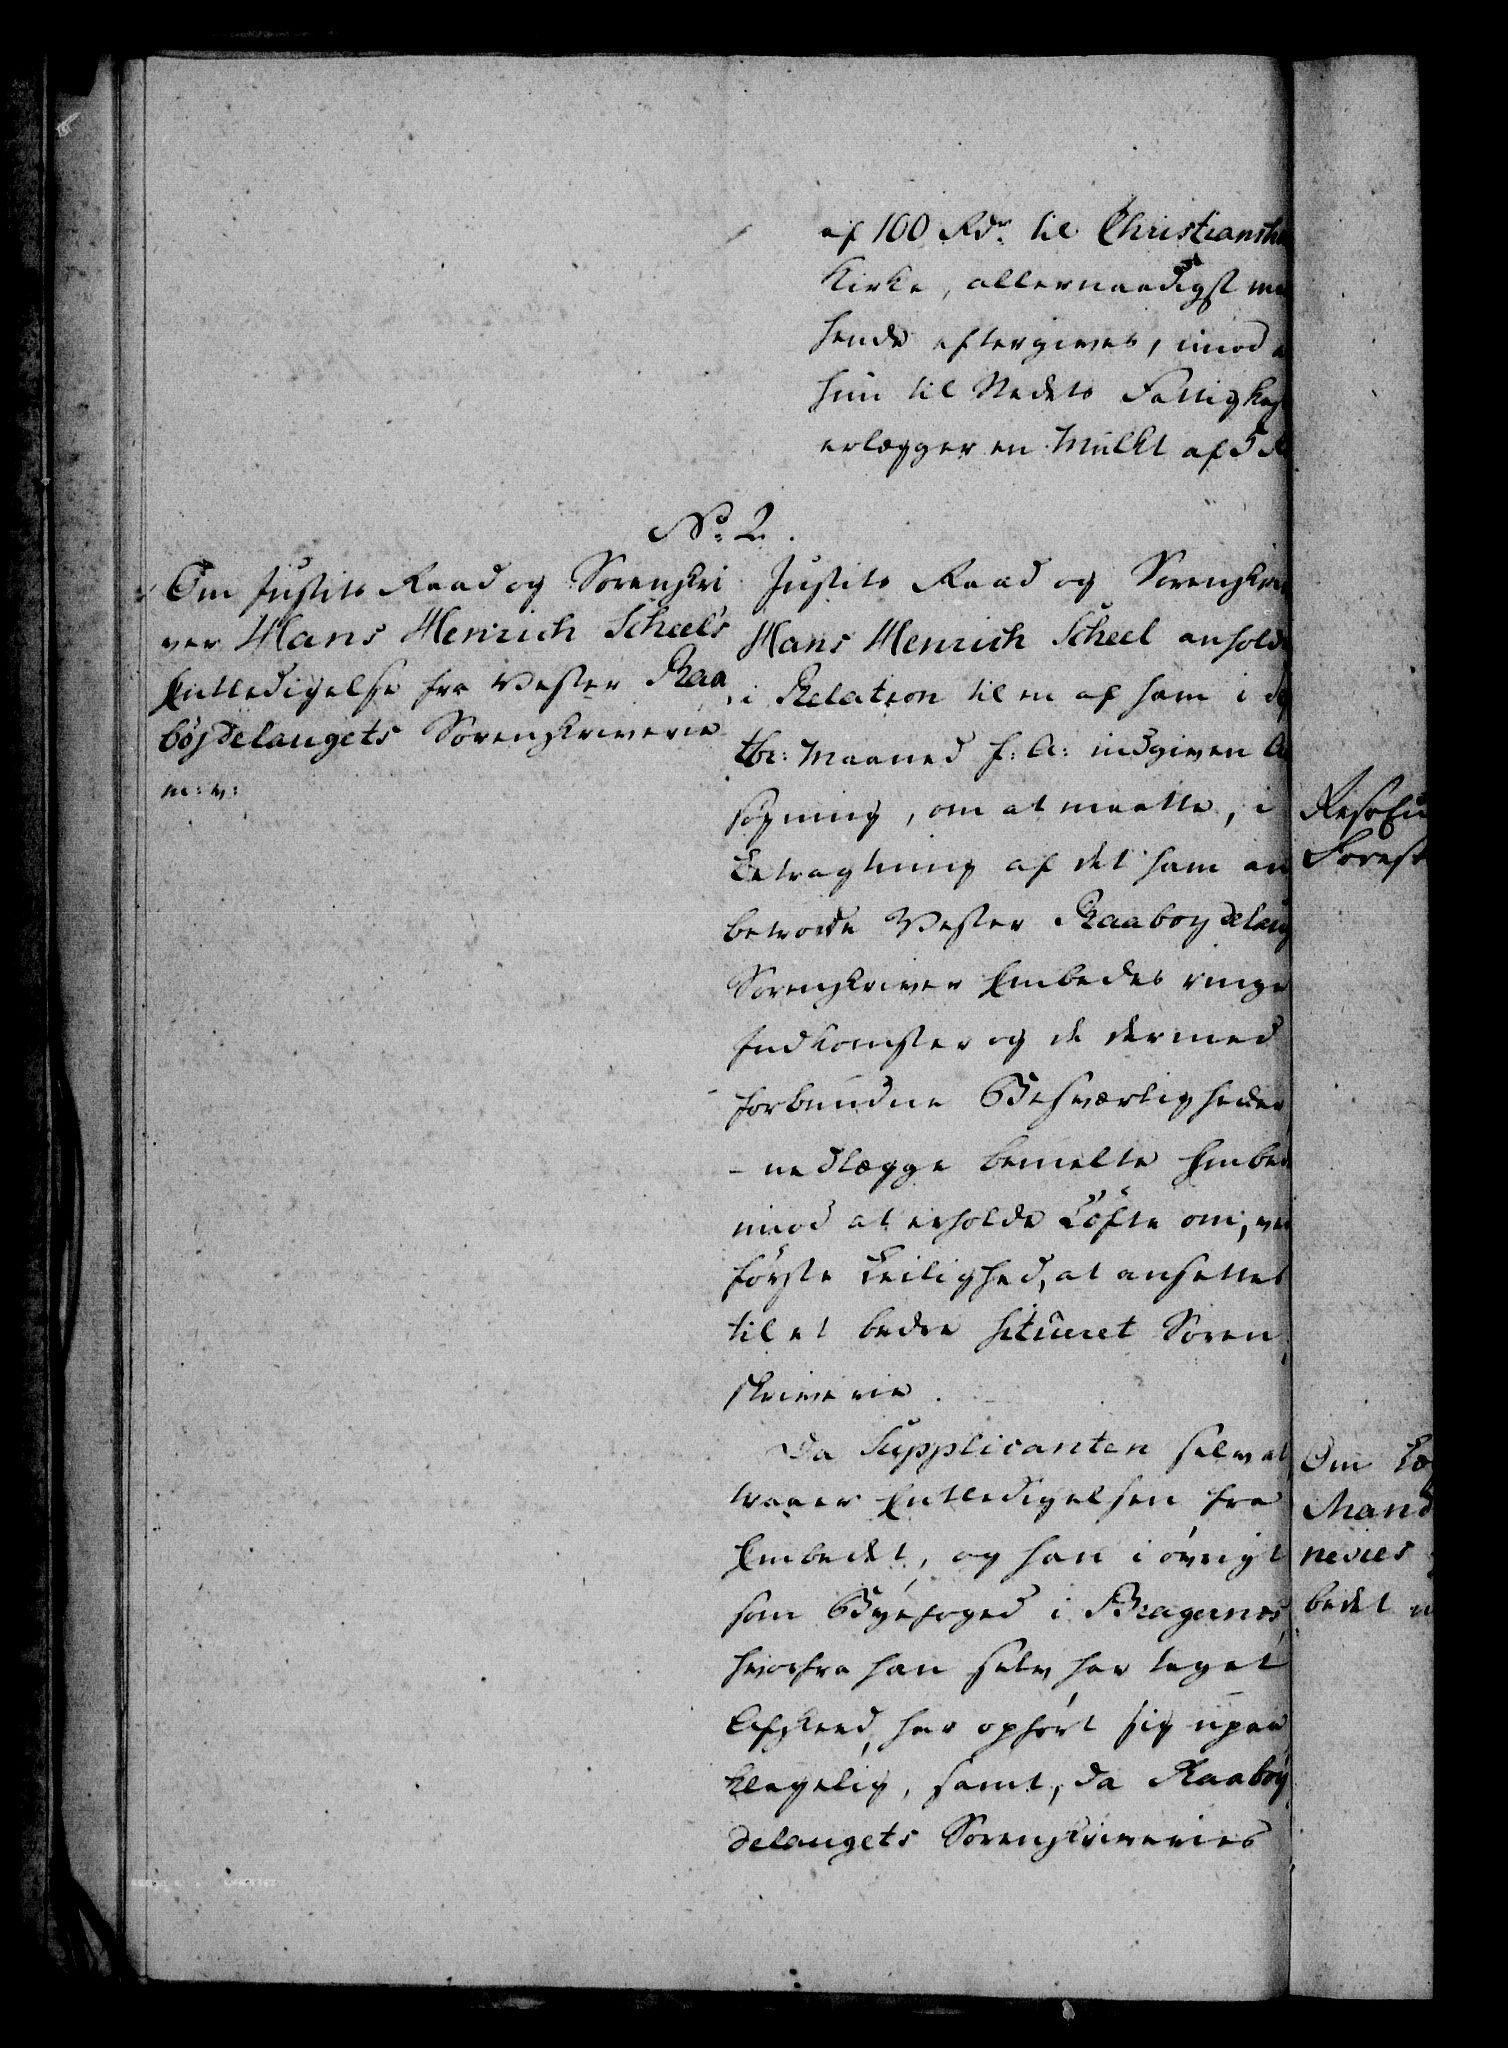 af 100 Rdr. til Christiansh
Kirke, allernaadigst m
hende eftergives, imod a
hun til Stedets Fattigkas
erlægger en Mulkt af 5 R
No. 2.
Om Justits Raad og Sorenskri
ver Hans Henrich Scheel's
Entledigelse fra Vester Raa
böjdelaugets Sorenskriverie
m: v:
Justits Raad og Sorenskriv
Hans Henrich Scheel anhold
i Relation til en af ham i
tbr: Maaned f: A: indgiven A
søgning, om at maatte, i
Betragtning af det ham an
betroede Vester Raaboydelaug
Sorenskriver Embedes ringe
Indkomster og de dermed
forbundne Besværligheder,
nedlægge bemelte Embed
imod at erholde Löfte om, ve
förste Leilighed, at ansettes
til et bedre situeret Soren
skriverie.
Da Supplicanten selv at
traaer Entledigelsen fra
Embedet, og han i övrigt
som Byefoged i Bragernes,
hvorfra han selv har taget
Afskeed, har opfört sig upaa
klagelig, samt, da Raaboy
delaugets Sorenskriveries
Resolu
Forest
Om Læ
Mand
nevies
bedet